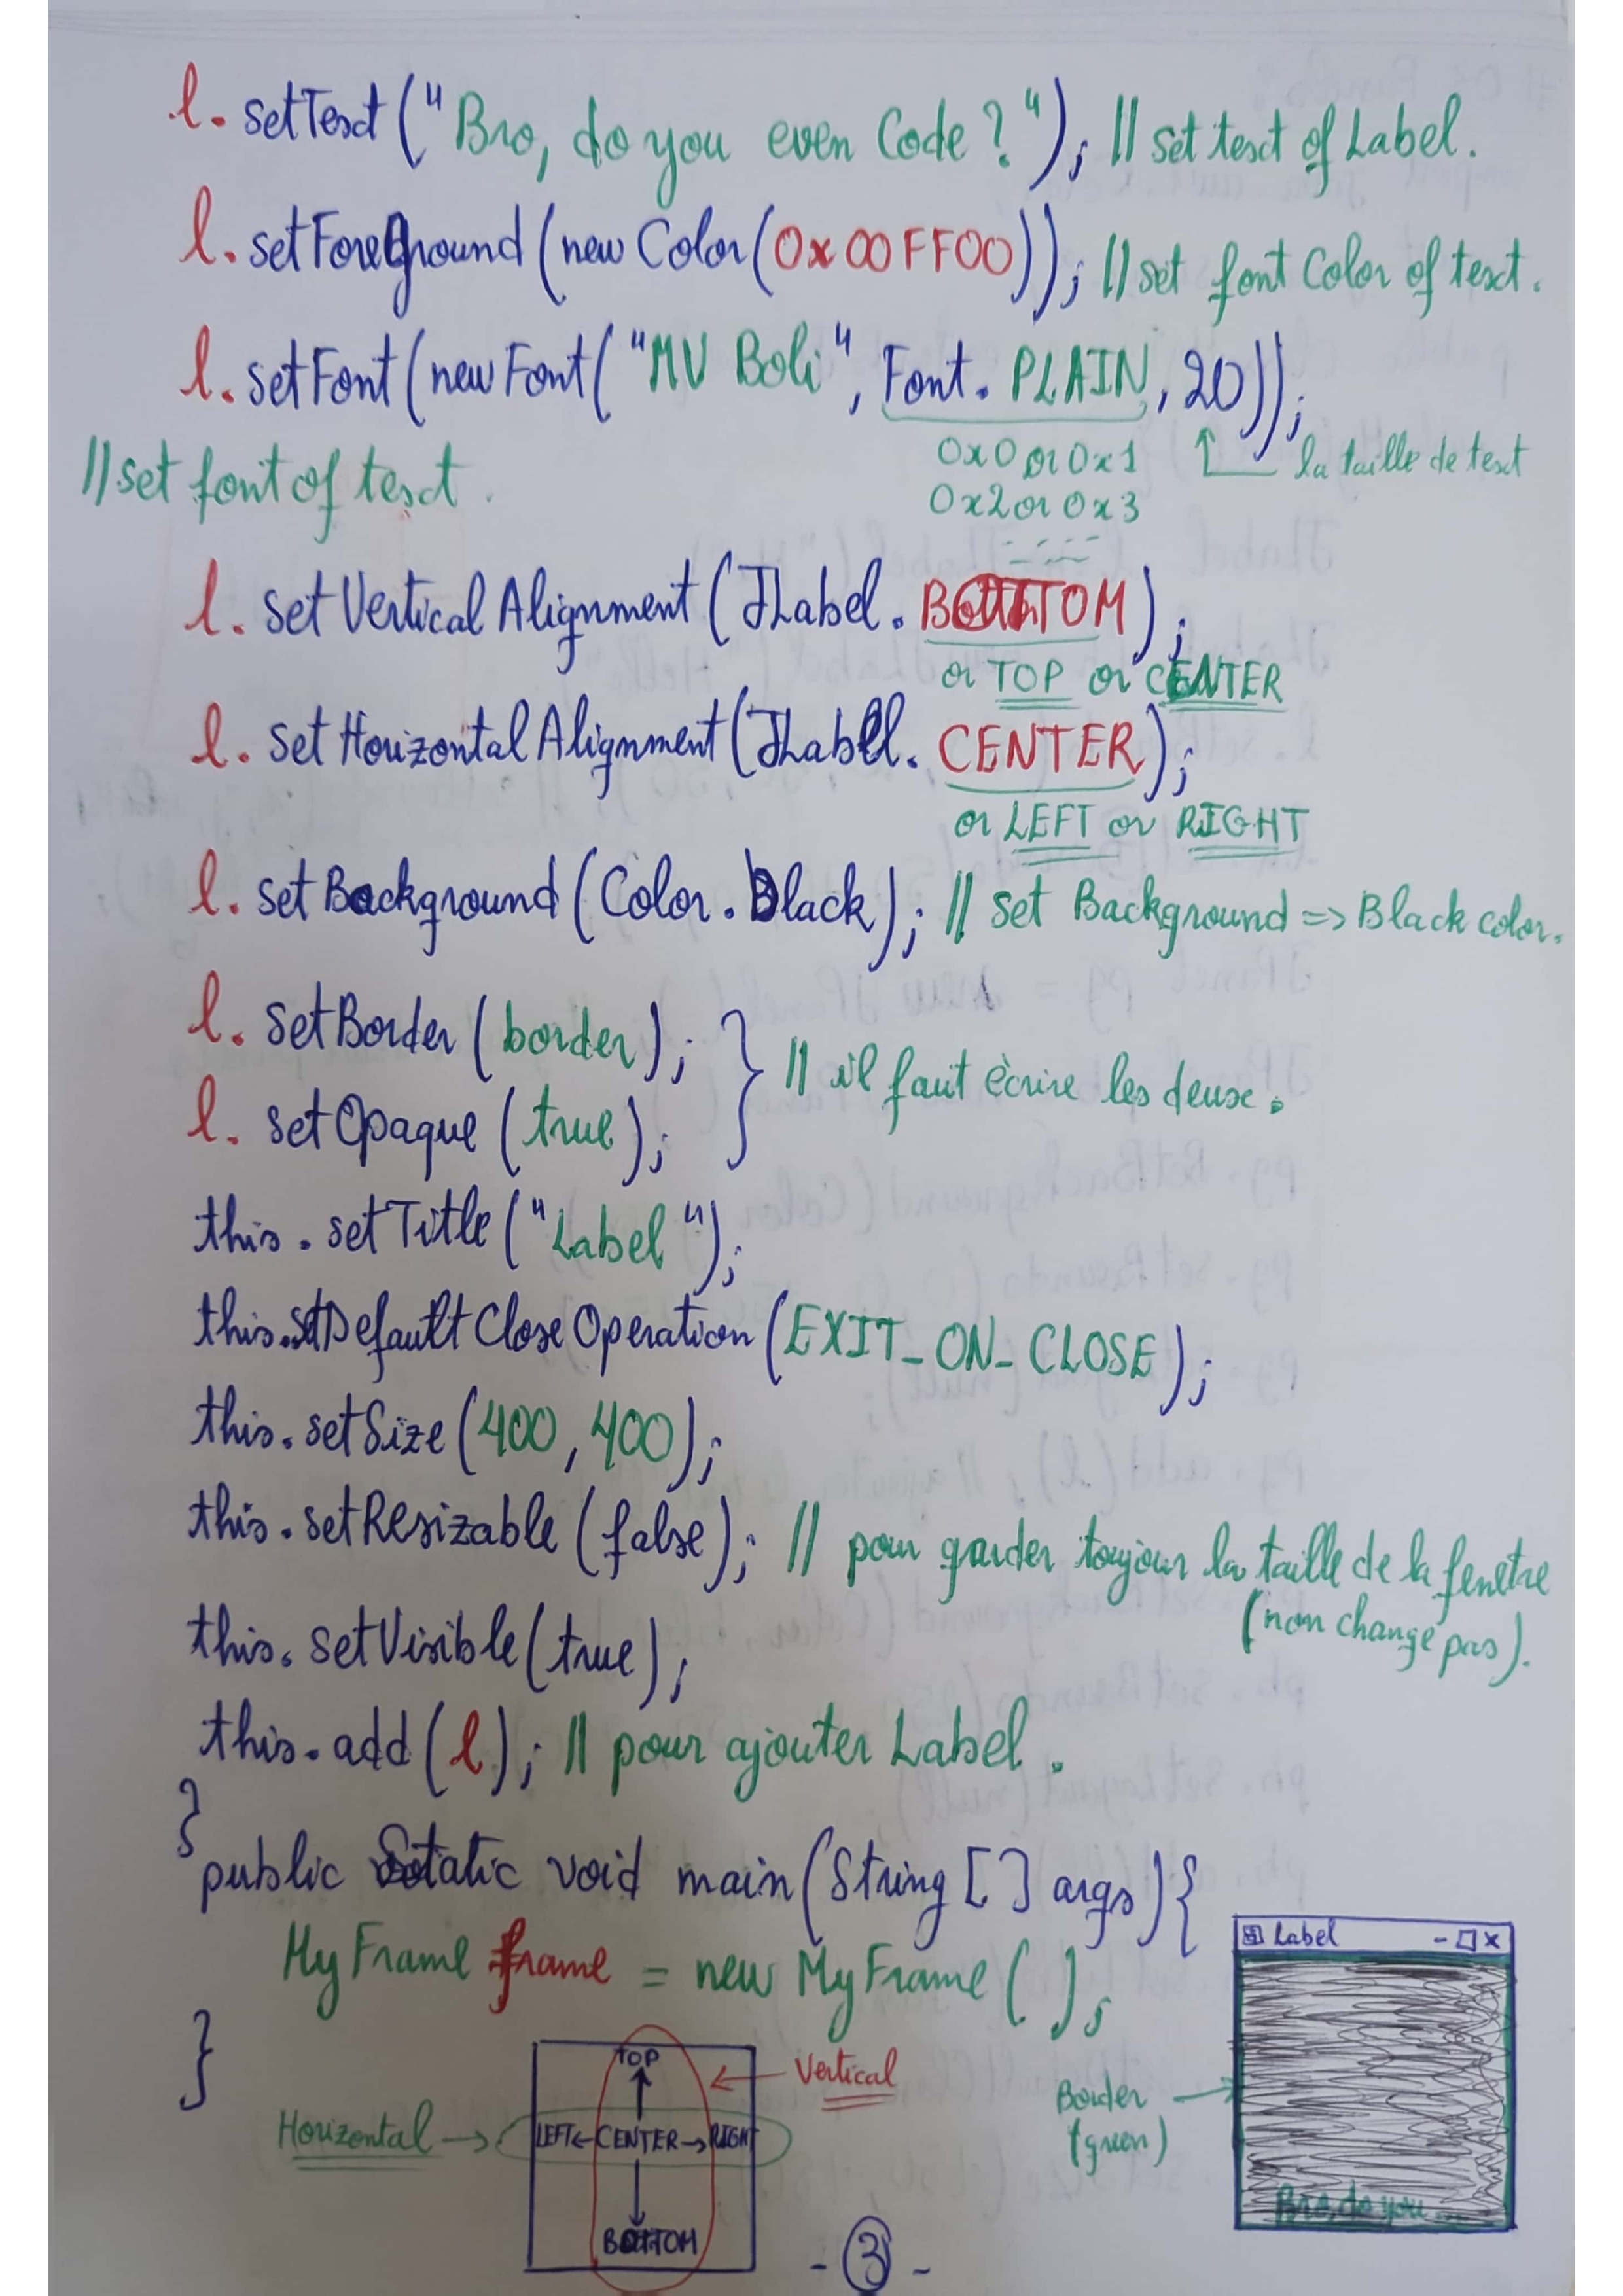 l. setText ("Bro, do you even Code ?"); // set text of Label.
l. setForeGround (new Color (0x00FF00)); // set font Color of text.
l. setFont (new Font ( "MV Boli", Font. PLAIN, 20));
0x0 or 0x1
la taille de text
// set font of text.
0x2 or 0x3
l. set Vertical Alignment (JLabel. BOTTOM);
or TOP or CENTER
l. set Horizontal Alignment (JLabel. CENTER);
or LEFT or RIGHT
l. set Background (Color. Black); // set Background => Black color.
l. set Border (border);
// il faut ècrire les deux.
l. set Opaque (true);
this. setTitle ("Label");
this.setDefault Close Operation (EXIT_ON_CLOSE);
this. setSize (400, 400);
this. setResizable (false); // pour garder toujour la taille de la fenetre
(non change pas).
this. setVisible (true);
this. add (l); // pour ajouter Label.
}
public Static void main (String [] args) {
My Frame frame = new My Frame ( );
}
Label - x
TOP
Vertical
Border
(green)
Horizontal
LEFT CENTER RIGHT
BOTTOM
Bro, do you ...
- 3 -